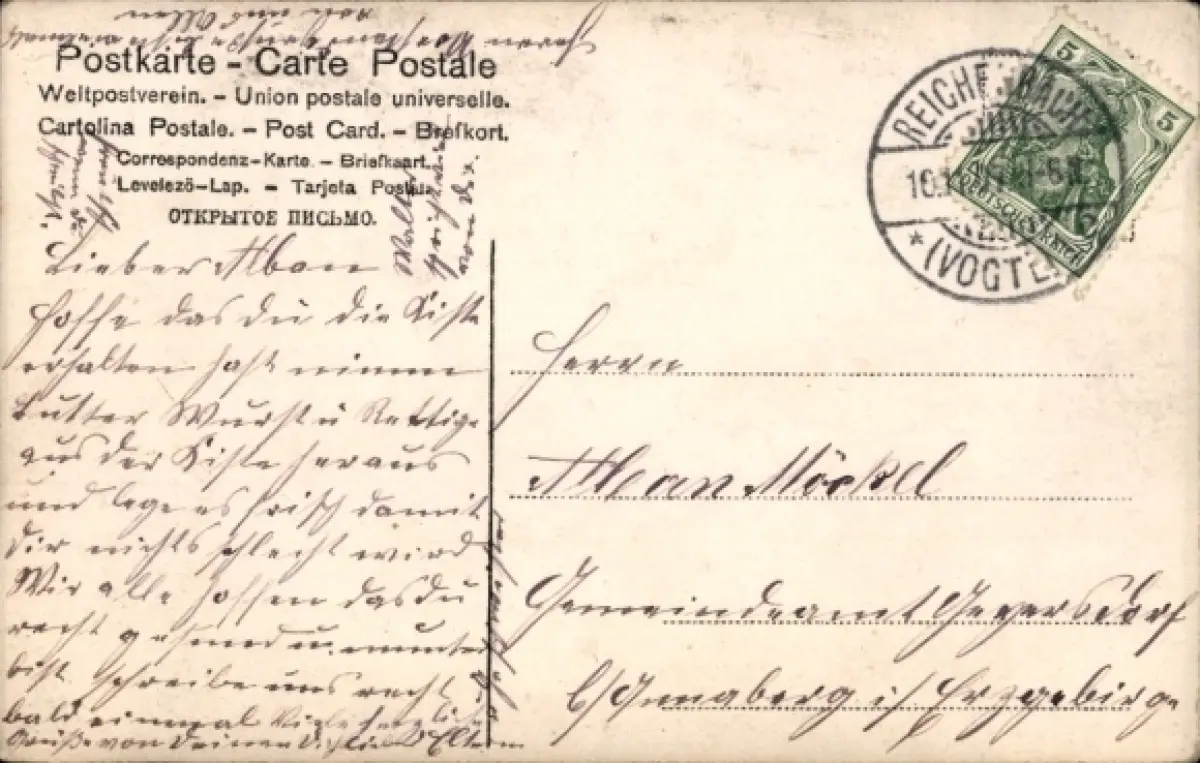 Postkarte - Carte Postale
Weltpostverein. - Union postale universelle.
Cartolina Postale. - Post Card. - Brefkort.
Correspondenz-Karte. - Briefkaart.
Levelező-Lap. - Tarjeta Postal.
ОТКРЫТОЕ ПИСЬМО.
REICHENBACH
(VOGTL
5
5
DEUTSCHES REICH
Lieber Alban
hoffe das du die Kiste
erhalten hast nimm
Butter Wurst u Rettige
aus der Kiste heraus
und lege es frisch damit
dir nichts schlecht wird
Wir alle hoffen das du
recht gesund u. munter
bist schreibe uns recht
bald einmal Viele herzliche
Grüße von Deinen Eltern
Herrn
Alban Möckel
Gemeindeamt Geyersdorf
b/Annaberg i/ Erzgebirge